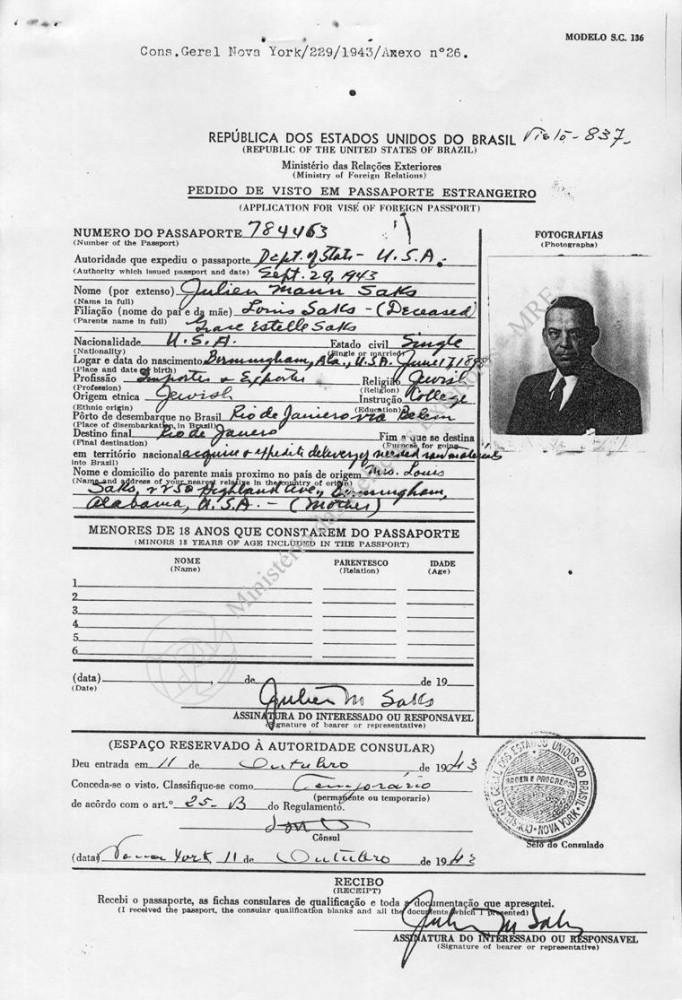 MODELO S.C. 136
Cons.Geral Nova York/229/1943/Anexo nº26.
REPÚBLICA DOS ESTADOS UNIDOS DO BRASIL Visto-837-
(REPUBLIC OF THE UNITED STATES OF BRAZIL)
Ministério das Relações Exteriores
(Ministry of Foreign Relations)
PEDIDO DE VISTO EM PASSAPORTE ESTRANGEIRO
(APPLICATION FOR VISÉ OF FOREIGN PASSPORT)
NUMERO DO PASSAPORTE 784463
(Number of the Passport)
Autoridade que expediu o passaporte Dept. of State - U.S.A.
(Authority which issued passport and date) Sept. 29, 1943
Nome (por extenso) Julien Mann Saks
(Name in full)
Filiação (nome do pai e da mãe) Louis Saks - (Deceased)
(Parents name in full) Grace Estelle Saks
Nacionalidade U.S.A. Estado civil Single
(Nationality) (Single or married)
Logar e data do nascimento Birmingham, Ala., U.S.A. June 17
(Place and date of birth)
Profissão Importer & Exporter Religião Jewish
(Profession) (Religion)
Origem etnica Jewish Instrução College
(Ethnic origin) (Education)
Pôrto de desembarque no Brasil Rio de Janiero via Belem
(Place of disembarkation in Brazil)
Destino final Rio de Janero Fim a que se destina
(Final destination) (Purpose for going
em território nacional acquire & expedite delivery of needed raw materials
into Brazil)
Nome e domicilio do parente mais proximo no país de origem Mrs. Louis
(Name and address of your nearest relative in the country of origin)
Saks, 2250 Highland Ave., Birmingham,
Alabama, U.S.A. - (Mother)
FOTOGRAFIAS
(Photographs)
MENORES DE 18 ANOS QUE CONSTAREM DO PASSAPORTE
(MINORS 18 YEARS OF AGE INCLUDED IN THE PASSPORT)
NOME PARENTESCO IDADE
(Name) (Relation) (Age)
1
2
3
4
5
6
(data) , de de 19
(Date)
Julien M Saks
ASSINATURA DO INTERESSADO OU RESPONSAVEL
(Signature of bearer or representative)
(ESPAÇO RESERVADO À AUTORIDADE CONSULAR)
Deu entrada em 11 de Outubro de 1943
Conceda-se o visto. Classifique-se como Temporário
(permanente ou temporario)
de acôrdo com o art.º 25-B do Regulamento.
Cônsul
(data) Nova York 11 de Outubro de 1943
CONSULADO GERAL DOS ESTADOS UNIDOS DO BRASIL
ORDEM E PROGRESSO
NOVA YORK
Selo do Consulado
RECIBO
(RECEIPT)
Recebi o passaporte, as fichas consulares de qualificação e toda a documentação que apresentei.
(I received the passport, the consular qualification blanks and all the documents which I presented)
Julien M Saks
ASSINATURA DO INTERESSADO OU RESPONSAVEL
(Signature of bearer or representative)